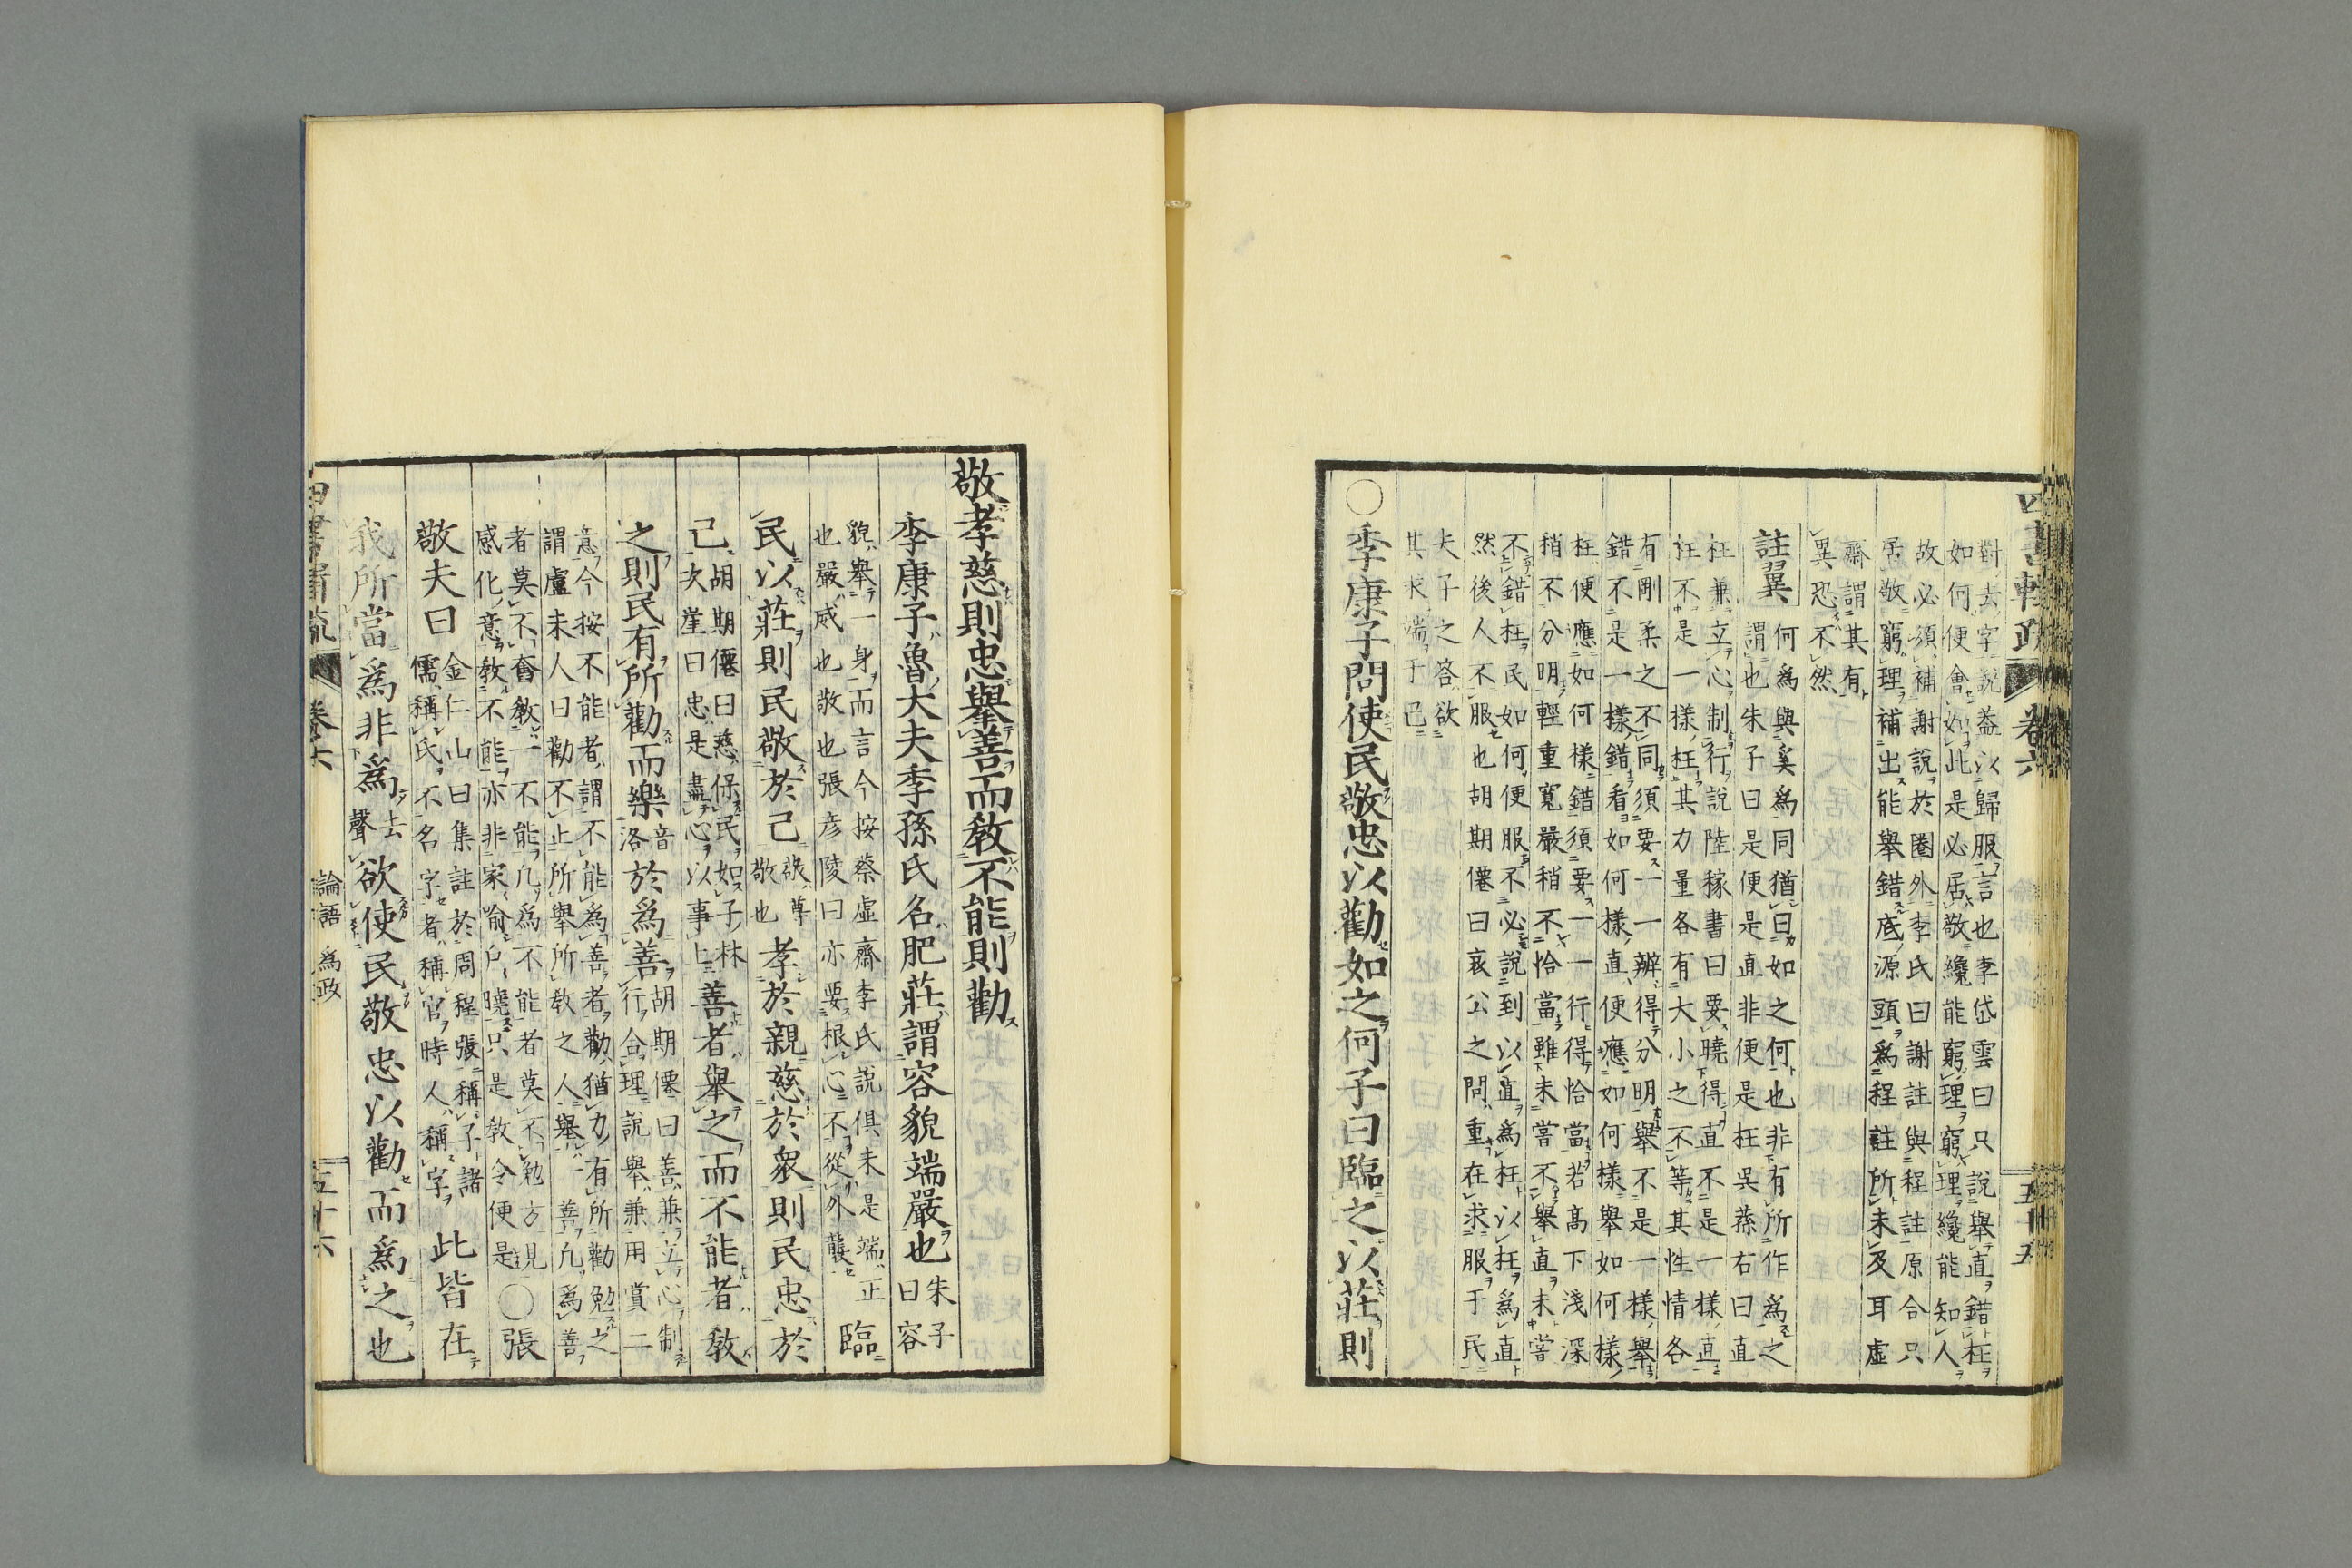 四書輯疏 卷六 五十五
對去字說蓋以歸服言也李岱雲曰只說舉直錯枉
如何便會如此是必居敬纔能窮理窮理纔能知人
故必須補謝說於圈外李氏曰謝註與程註原合只
居敬窮理補出能舉錯底源頭爲程註所未及耳虛
齋謂其有
異恐不然
註翼
何爲與奚爲同猶曰如之何也非有所作爲之
謂也朱子曰是便是直非便是枉吳蓀右曰直
枉兼立心制行說陸稼書曰要曉得直不是一樣直
枉不是一樣枉其力量各有大小之不等其性情各
有剛柔之不同須要一一辨得分明舉不是一樣舉
錯不是一樣錯看如何樣直便應如何樣舉如何樣
枉便應如何樣錯須要一一行得恰當若高下淺深
稍不分明輕重寬嚴稍不恰當雖未嘗不舉直未嘗
不錯枉民如何便服不必說到以直爲枉以枉爲直
然後人不服也胡期僊曰哀公之問重在求服于民
夫子之答欲
其求端于己
〇季康子問使民敬忠以勸如之何子曰臨之以莊則
敬孝慈則忠舉善而教不能則勸
季康子魯大夫季孫氏名肥莊謂容貌端嚴也
朱子
曰容
貌舉一身而言今按蔡虛齋李氏說俱未是端正
也嚴威也敬也張彥陵曰亦要根心不從外襲
臨
民以莊則民敬於己
敬尊
敬也
孝於親慈於衆則民忠於
己
胡期僊曰慈保民如子林
次崖曰忠是盡心以事上
善者舉之而不能者教
之則民有所勸而樂
音
洛
於爲善
胡期僊曰善兼立心制
行合理說舉兼用賞二
意今按不能者謂不能爲善者勸猶力有所勸勉之
謂盧未人曰勸不止所舉所教之人舉一善凡爲善
者莫不奮教一不能凡爲不能者莫不勉方見
感化意教不能亦非家喻戶曉只是教令便是
〇張
敬夫曰
金仁山曰集註於周程張稱子諸
儒稱氏不名字者稱官時人稱字
此皆在
我所當爲非爲
去
聲
欲使民敬忠以勸而爲之也
四書輯疏 卷六 論語 爲政 五十六